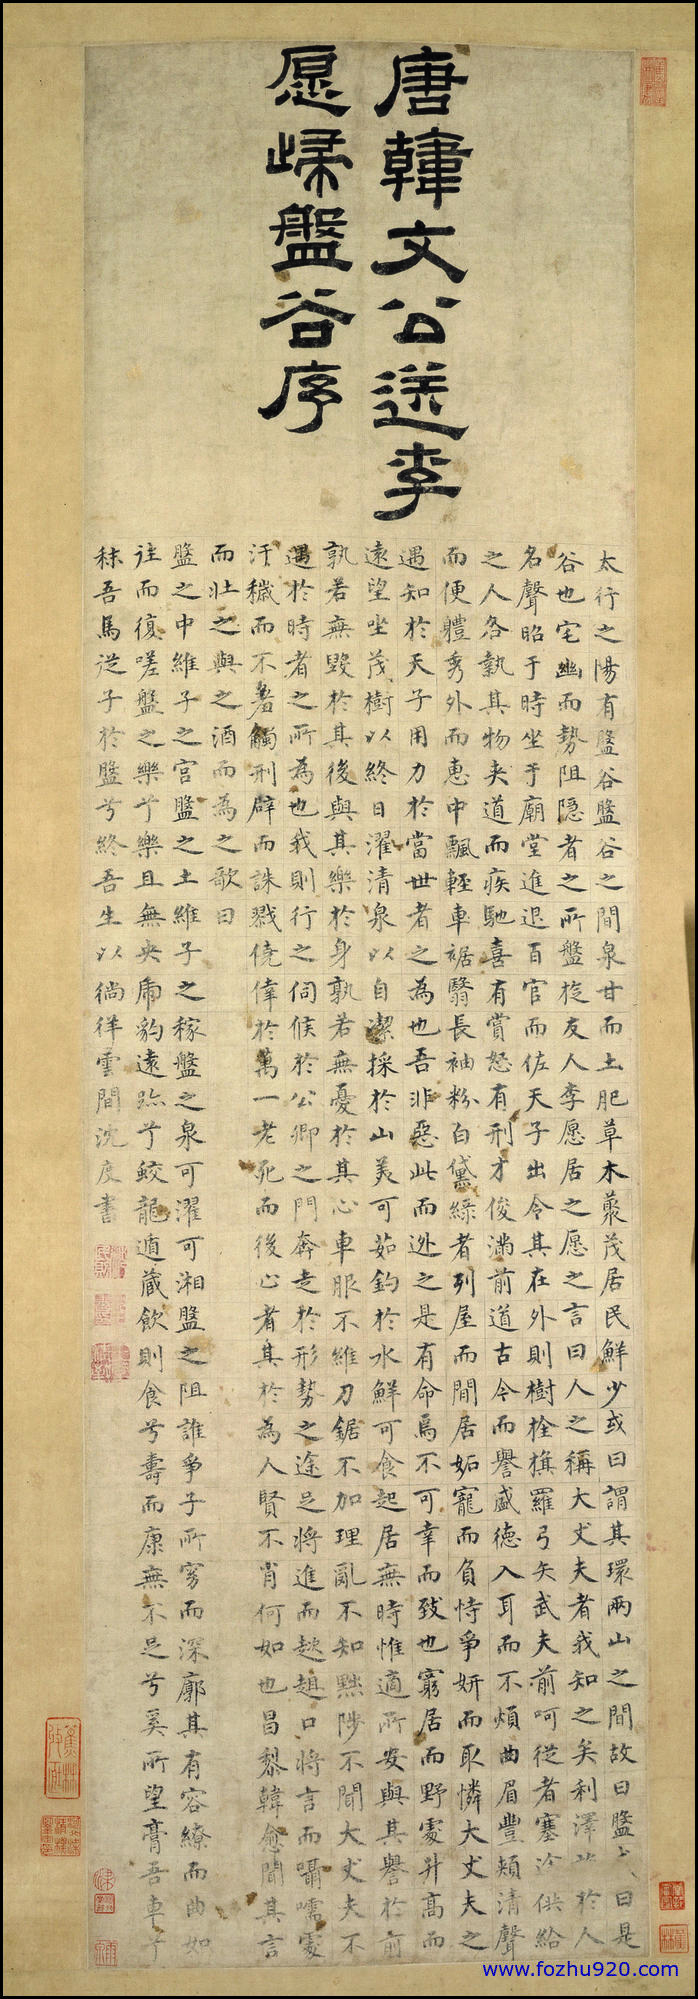 唐韓文公送李
愿歸盤谷序
太行之陽有盤谷盤谷之間泉甘而土肥草木藂茂居民鮮少或曰謂其環兩山之間故曰盤 曰是
谷也宅幽而勢阻隱者之所盤旋友人李愿居之愿之言曰人之稱大丈夫者我知之矣利澤 於人
名聲昭于時坐于廟堂進退百官而佐天子出令其在外則樹栓旗羅弓矢武夫前呵從者塞途供給
之人各執其物夾道而疾馳喜有賞怒有刑才俊滿前道古今而譽盛德入耳而不煩曲眉豐頰清聲
而便體秀外而惠中飄輕裾翳長袖粉白黛綠者列屋而閒居妬寵而負恃爭妍而取憐大丈夫之
遇知於天子用力於當世者之為也吾非惡此而逃之是有命焉不可幸而致也窮居而野處升高而
遠望坐茂樹以終日濯清泉以自潔採於山美可茹釣於水鮮可食起居無時惟適所安與其譽於前
孰若無毀於其後與其樂於身孰若無憂於其心車服不維刀鋸不加理亂不知黜陟不聞大丈夫不
遇於時者之所為也我則行之伺候於公卿之門奔走於形勢之途足將進而趑趄口將言而囁嚅處
汙穢而不羞觸刑辟而誅戮僥倖於萬一老死而後止者其於為人賢不肖何如也昌黎韓愈聞其言
而壯之與之酒而為之歌曰
盤之中維子之宮盤之土維子之稼盤之泉可濯可湘盤之阻誰爭子所窈而深廓其有容繚而曲如
往而復嗟盤之樂兮樂且無央虎豹遠跡兮蛟龍遁藏飲則食兮壽而康無不足兮奚所望膏吾車兮
秣吾馬從子於盤兮終吾生以徜徉雲間沈度書
www.fozhu920.com